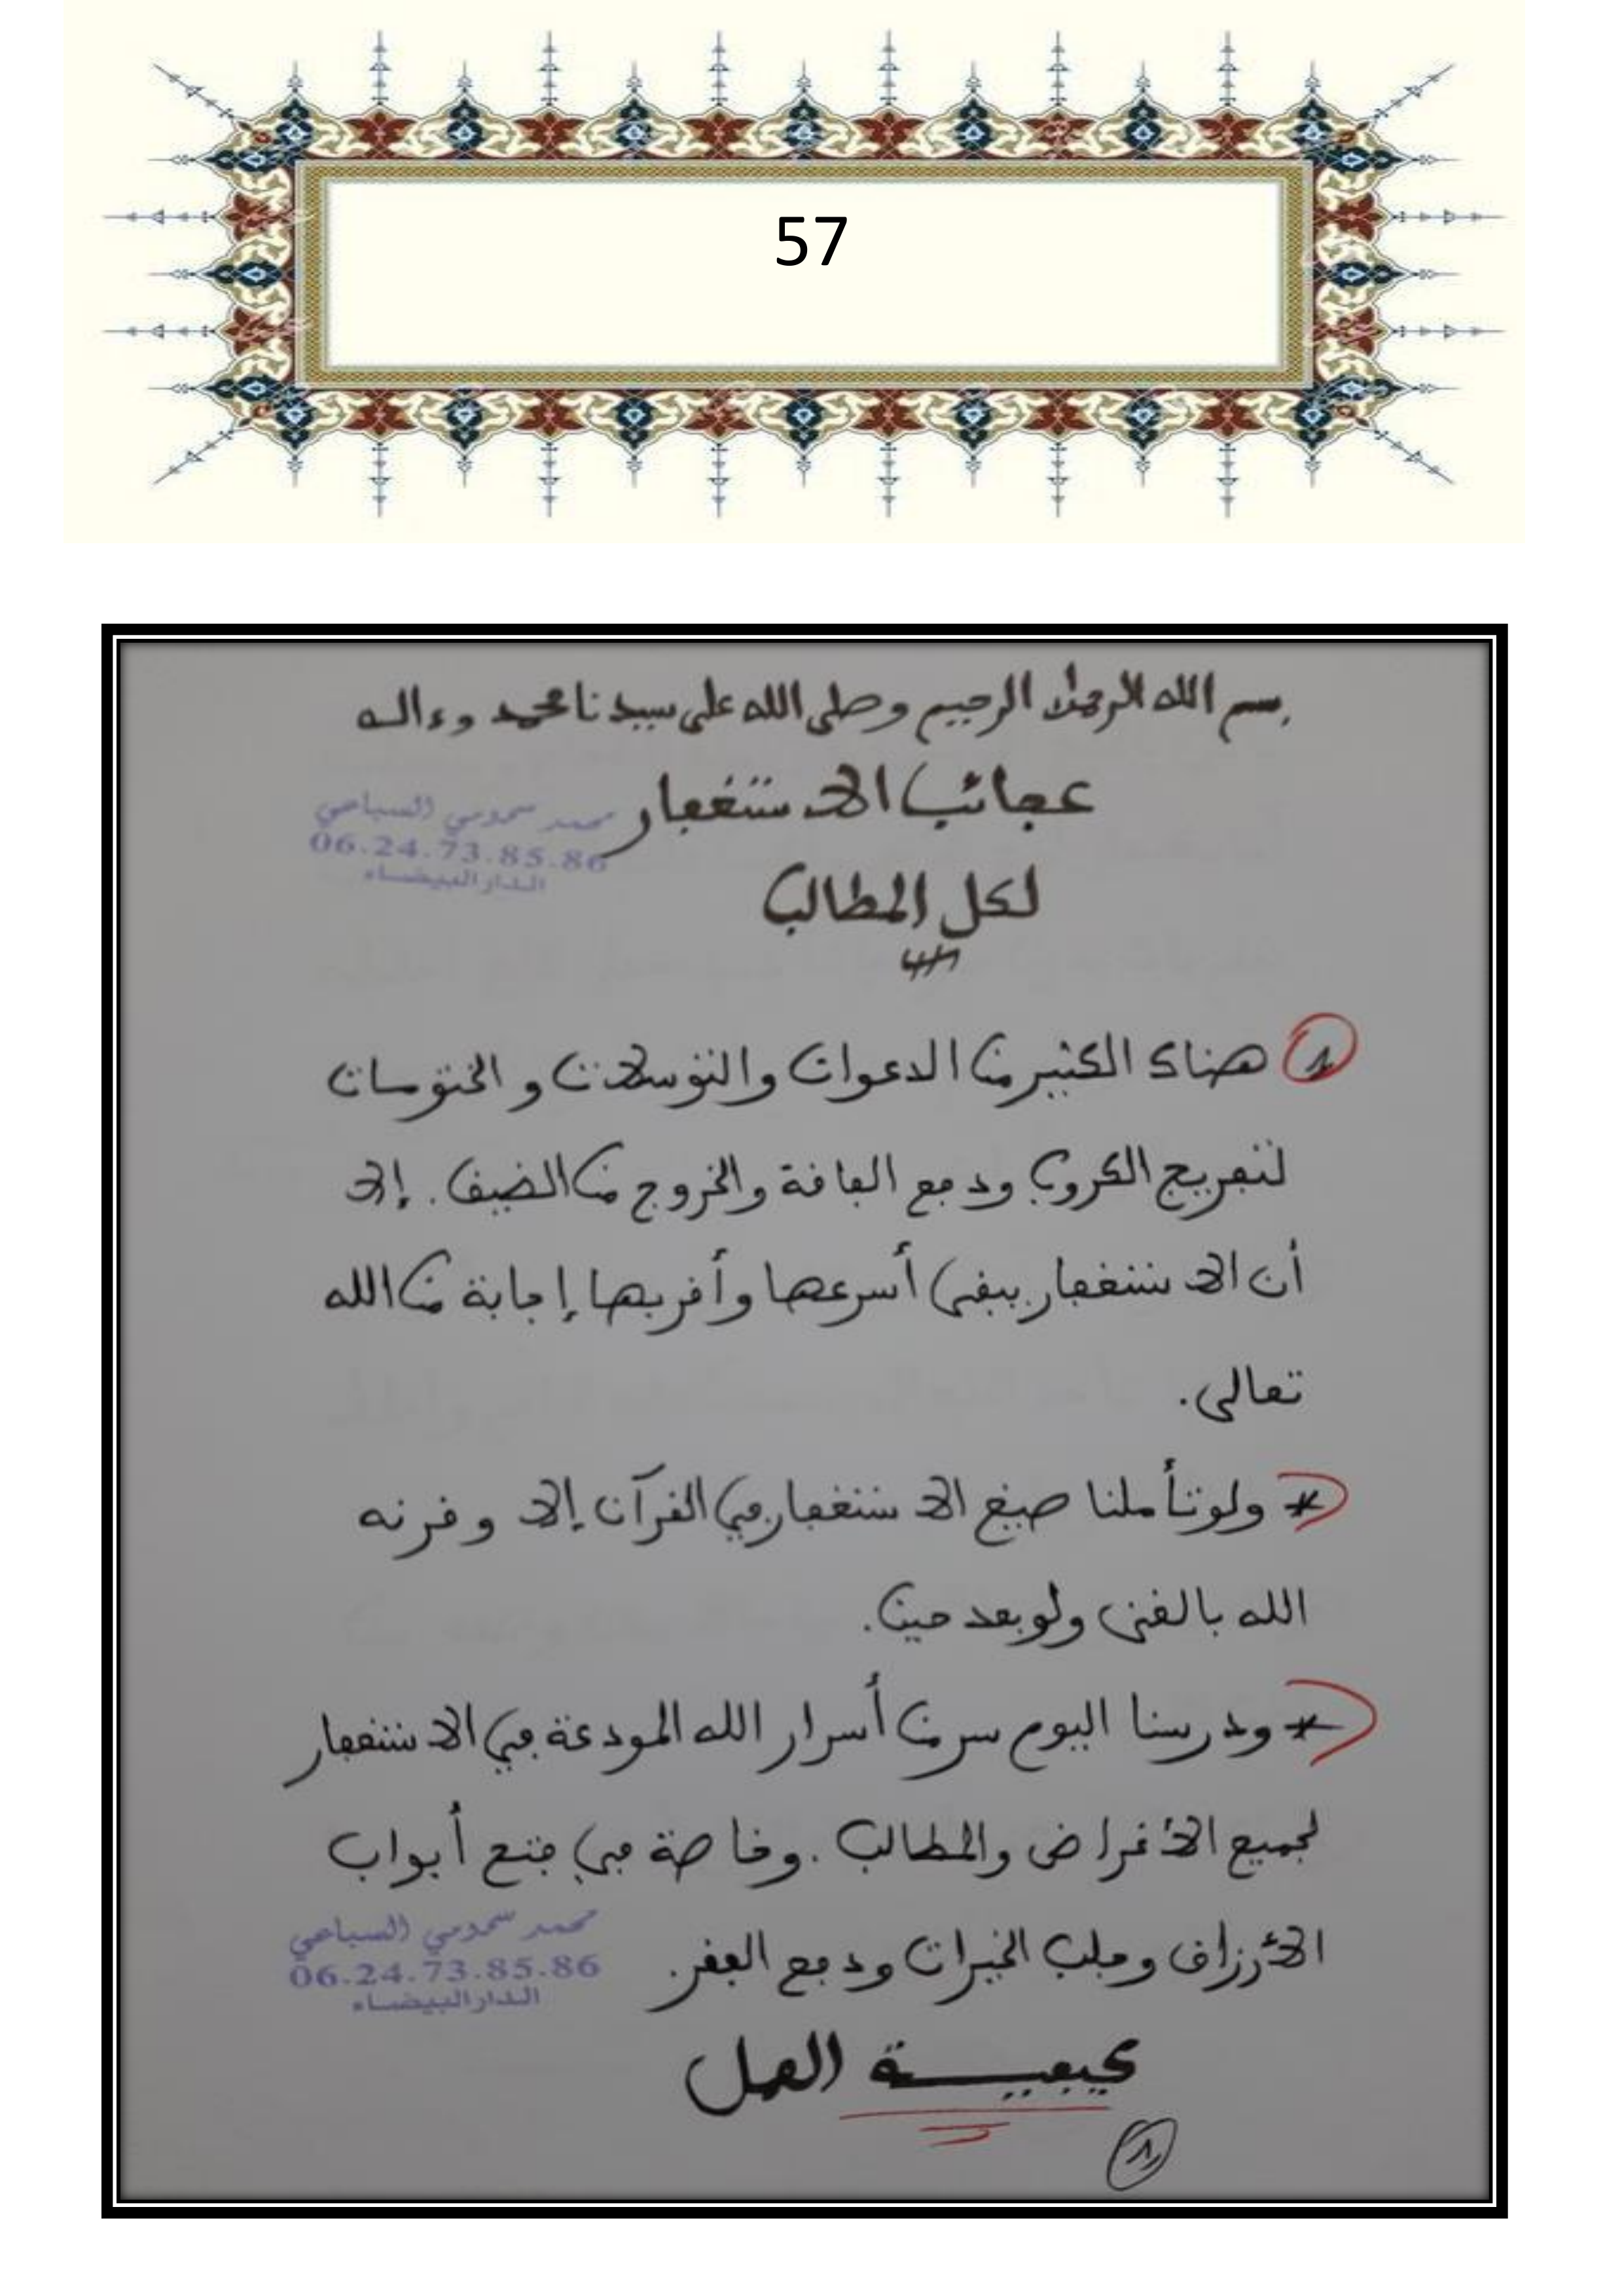 57
بسم الله الرحمان الرحيم وصلى الله على سيدنا محمد وءاله
عجائب الاستغفار
محمد سحومي السباعي
06.24.73.85.86
الدار البيضاء
لكل المطالب
1 هناك الكثير من الدعوات والتوسلات و الختومات
لتفريج الكروب ودفع الفاقة والخروج من الضيق. إلا
أن الاستغفار يبقى أسرعها وأقربها إجابة من الله
تعالى.
* ولو تأملنا صيغ الاستغفار في القرآن إلا وقرنه
الله بالغنى ولو بعد حين.
* ودرسنا اليوم سر من أسرار الله المودعة في الاستغفار
لجميع الأغراض والمطالب. وخاصة في فتح أبواب
الأرزاق وجلب الخيرات ودفع الفقر.
محمد سحومي السباعي
06.24.73.85.86
الدار البيضاء
كيفيـــة العمل
1